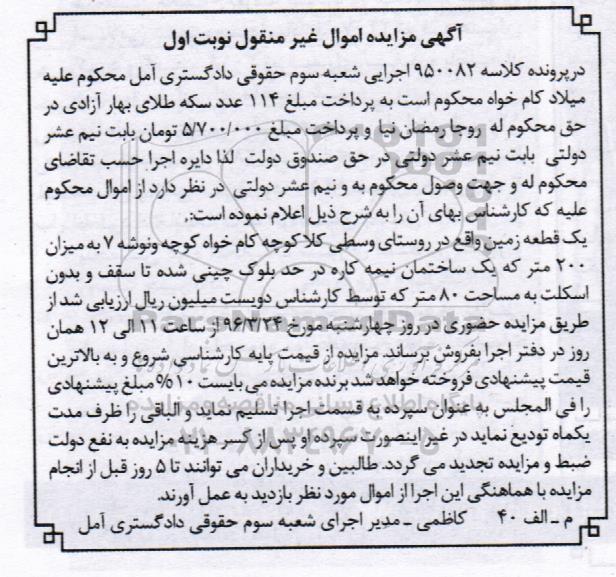 آگهی مزایده اموال غیر منقول نوبت اول
درپرونده کلاسه ۹۵۰۰۸۲ اجرایی شعبه سوم حقوقی دادگستری آمل محکوم علیه
میلاد کام خواه محکوم است به پرداخت مبلغ ۱۱۴ عدد سکه طلای بهار آزادی در
حق محکوم له روجا رمضان نیا و پرداخت مبلغ ۵/۷۰۰/۰۰۰ تومان بابت نیم عشر
دولتی بابت نیم عشر دولتی در حق صندوق دولت لذا دایره اجرا حسب تقاضای
محکوم له و جهت وصول محکوم به و نیم عشر دولتی در نظر دارد از اموال محکوم
علیه که کارشناس بهای آن را به شرح ذیل اعلام نموده است:.
یک قطعه زمین واقع در روستای وسطی کلا کوچه کام خواه کوچه ونوشه ۷ به میزان
۲۰۰ متر که یک ساختمان نیمه کاره در حد بلوک چینی شده تا سقف و بدون
اسکلت به مساحت ۸۰ متر که توسط کارشناس دویست میلیون ریال ارزیابی شد از
طریق مزایده حضوری در روز چهارشنبه مورخ ۹۶/۳/۲۴ از ساعت ۱۱ الی ۱۲ همان
روز در دفتر اجرا بفروش برساند. مزایده از قیمت پایه کارشناسی شروع و به بالاترین
قیمت پیشنهادی فروخته خواهد شد برنده مزایده می بایست ۱۰% مبلغ پیشنهادی
را فی المجلس به عنوان سپرده به قسمت اجرا تسلیم نماید و الباقی را ظرف مدت
یکماه تودیع نماید در غیر اینصورت سپرده او پس از کسر هزینه مزایده به نفع دولت
ضبط و مزایده تجدید می گردد. طالبین و خریداران می توانند تا ۵ روز قبل از انجام
مزایده با هماهنگی این اجرا از اموال مورد نظر بازدید به عمل آورند.
م ـ الف ۴۰ کاظمی ـ مدیر اجرای شعبه سوم حقوقی دادگستری آمل
ParsNamadData
۰۲۱-۸۸۳۴۹۶۷۰-۵